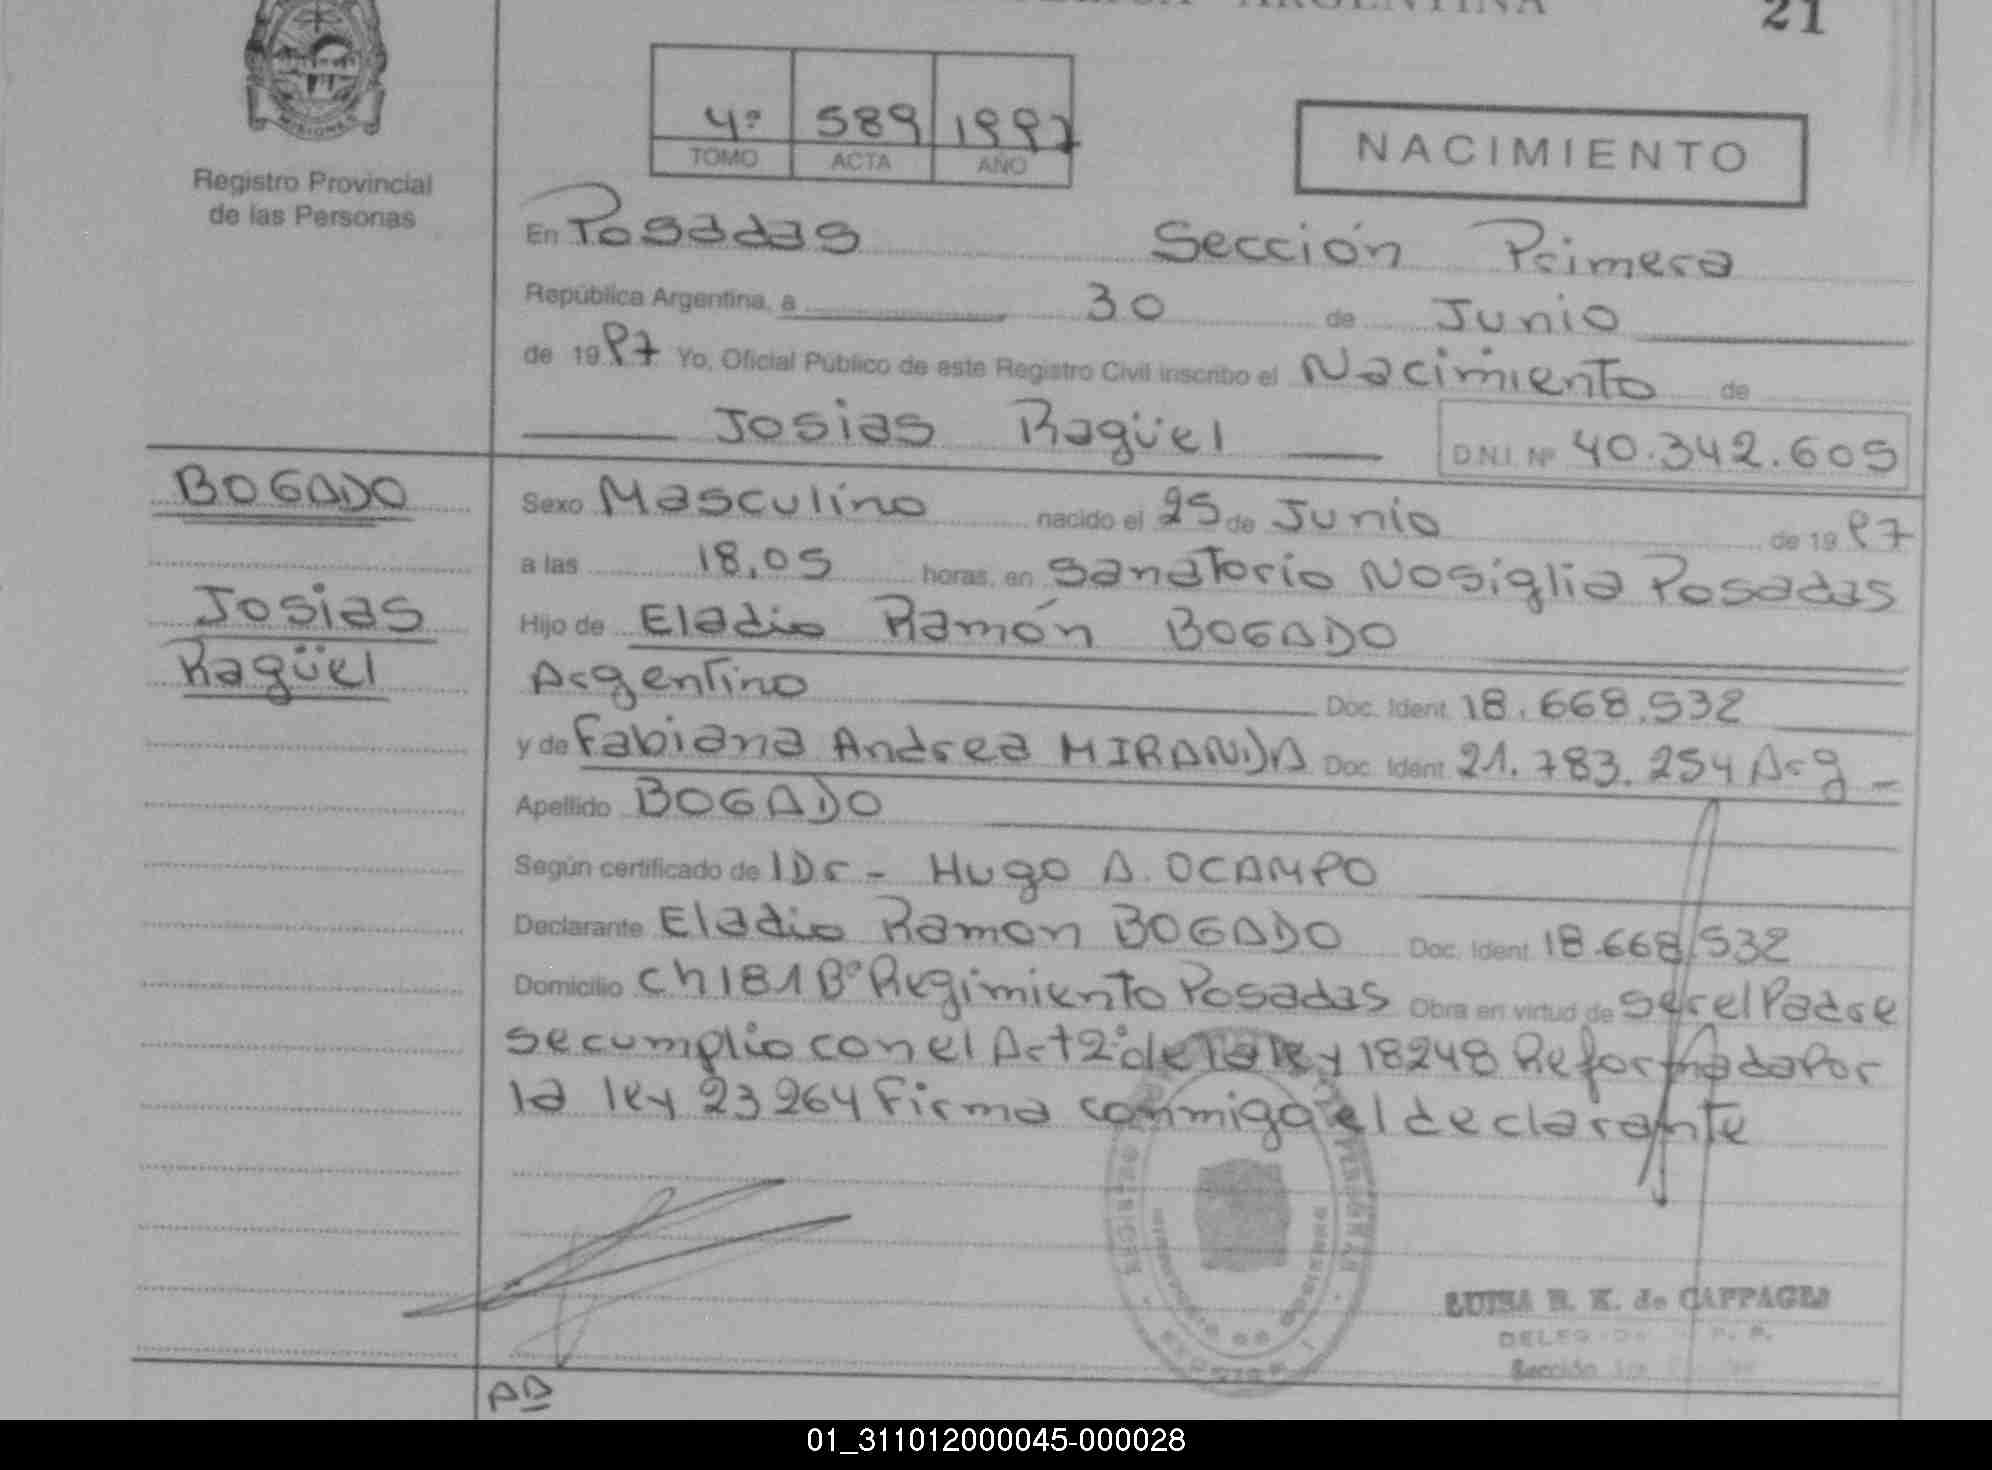 REPÚBLICA ARGENTINA 21
MISIONES
Registro Provincial
de las Personas
4º 589 1997
TOMO ACTA AÑO
NACIMIENTO
En Posadas Sección Primera
República Argentina, a 30 de Junio
de 1997 Yo, Oficial Público de este Registro Civil inscribo el Nacimiento de
Josias Ragüel D.N.I. Nº 40.342.605
BOGADO
Josias
Ragüel
Sexo Masculino nacido el 25 de Junio de 1997
a las 18,05 horas, en Sanatorio Nosiglia Posadas
Hijo de Eladio Ramón BOGADO
Argentino Doc. Ident. 18.668.532
y de Fabiana Andrea MIRANDA Doc. Ident. 21.783.254 Arg
Apellido BOGADO
Según certificado de 1Dr - Hugo A. OCAMPO
Declarante Eladio Ramon BOGADO Doc. Ident. 18.668.532
Domicilio Ch 181 Bº Regimiento Posadas Obra en virtud de ser el Padre
se cumplio con el Art 2º de la ley 18248 Reformada Por
la ley 23264 Firma conmigo el declarante
LUISA R. K. de CAPPAGES
Sección
AB
01_311012000045-000028